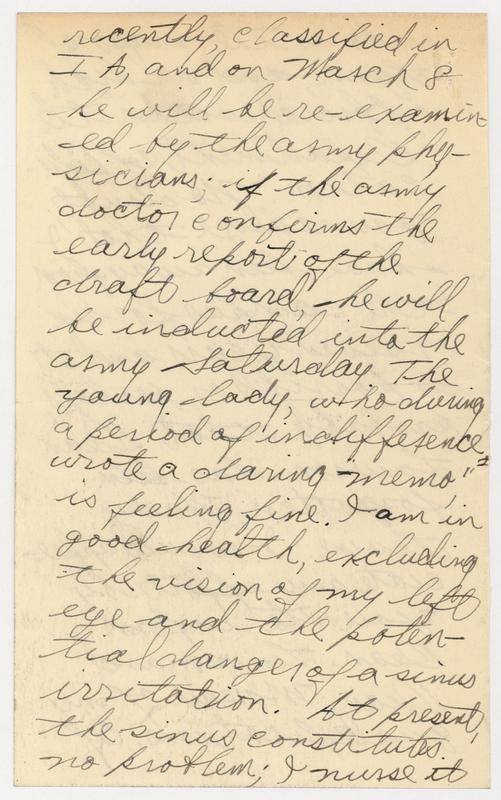 recently, classified in
I A, and on March 8
he will be re-examin-
ed by the army phy-
sicians; if the army
doctor confirms the
early report of the
draft board, he will
be inducted into the
army Saturday. The
young lady, who during
a period of indifference,
wrote a daring "memo,"
is feeling fine. I am in
good health, excluding
the vision of my left
eye and the poten-
tial danger of a sinus
irritation. At present,
the sinus constitutes
no problem; I nurse it